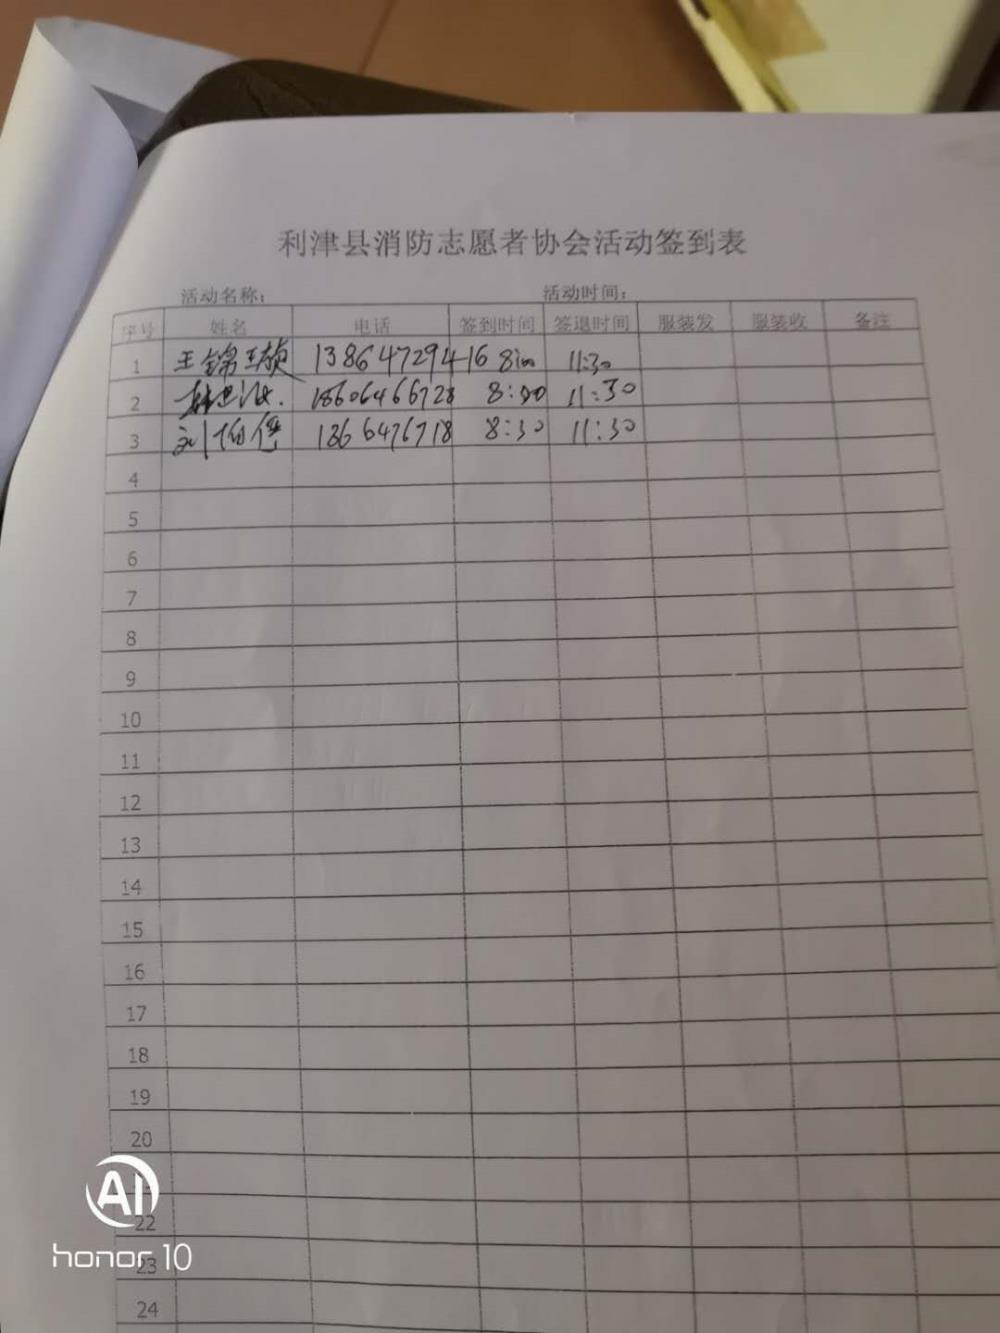 利津县消防志愿者协会活动签到表
活动名称： 活动时间：
序号 姓名 电话 签到时间 签退时间 服装发 服装收 备注
1 王锦 13864729416 8:00 11:30
2 18606466728 8:30 11:30
3 刘 8:30 11:30
4
5
6
7
8
9
10
11
12
13
14
15
16
17
18
19
20
22
23
24
AI
honor 10